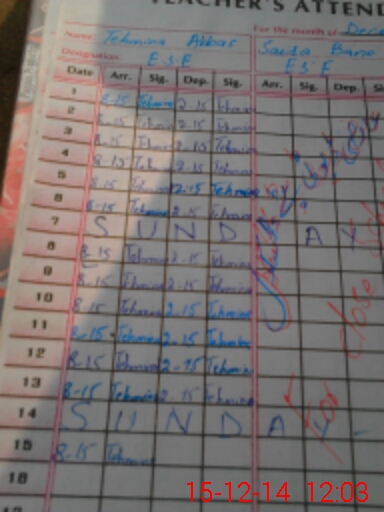 TEACHER'S ATTEND
Name: Tehmina Abbas For the month of Dece
Designation: E S E Saida Bano
E S E
Date Arr. Sig. Dep. Sig. Arr. Sig. Dep. S
1 8-15 Tehmina 2-15 Tehmina
2 8-15 Tehmina 2-15 Tehmina
3 8-15 Tehmina 2-15 Tehmina
4 8-15 Teh 2-15 Tehmina
5 8-15 Tehmina 2-15 Tehmina
6 8-15 Tehmina 2-15 Tehmina
7 S U N D A Y
8 8-15 Tehmina 2-15 Tehmina
9 8-15 Tehmina 2-15 Tehmina
10 8-15 Tehmina 2-15 Tehmina
11 8-15 Tehmina 2-15 Tehmina
12 8-15 Tehmina 2-15 Tehmina
13 8-15 Tehmina 2-15 Tehmina
14 S U N D A
15 8-15 Tehmina
16
close
For
15-12-14 12:03